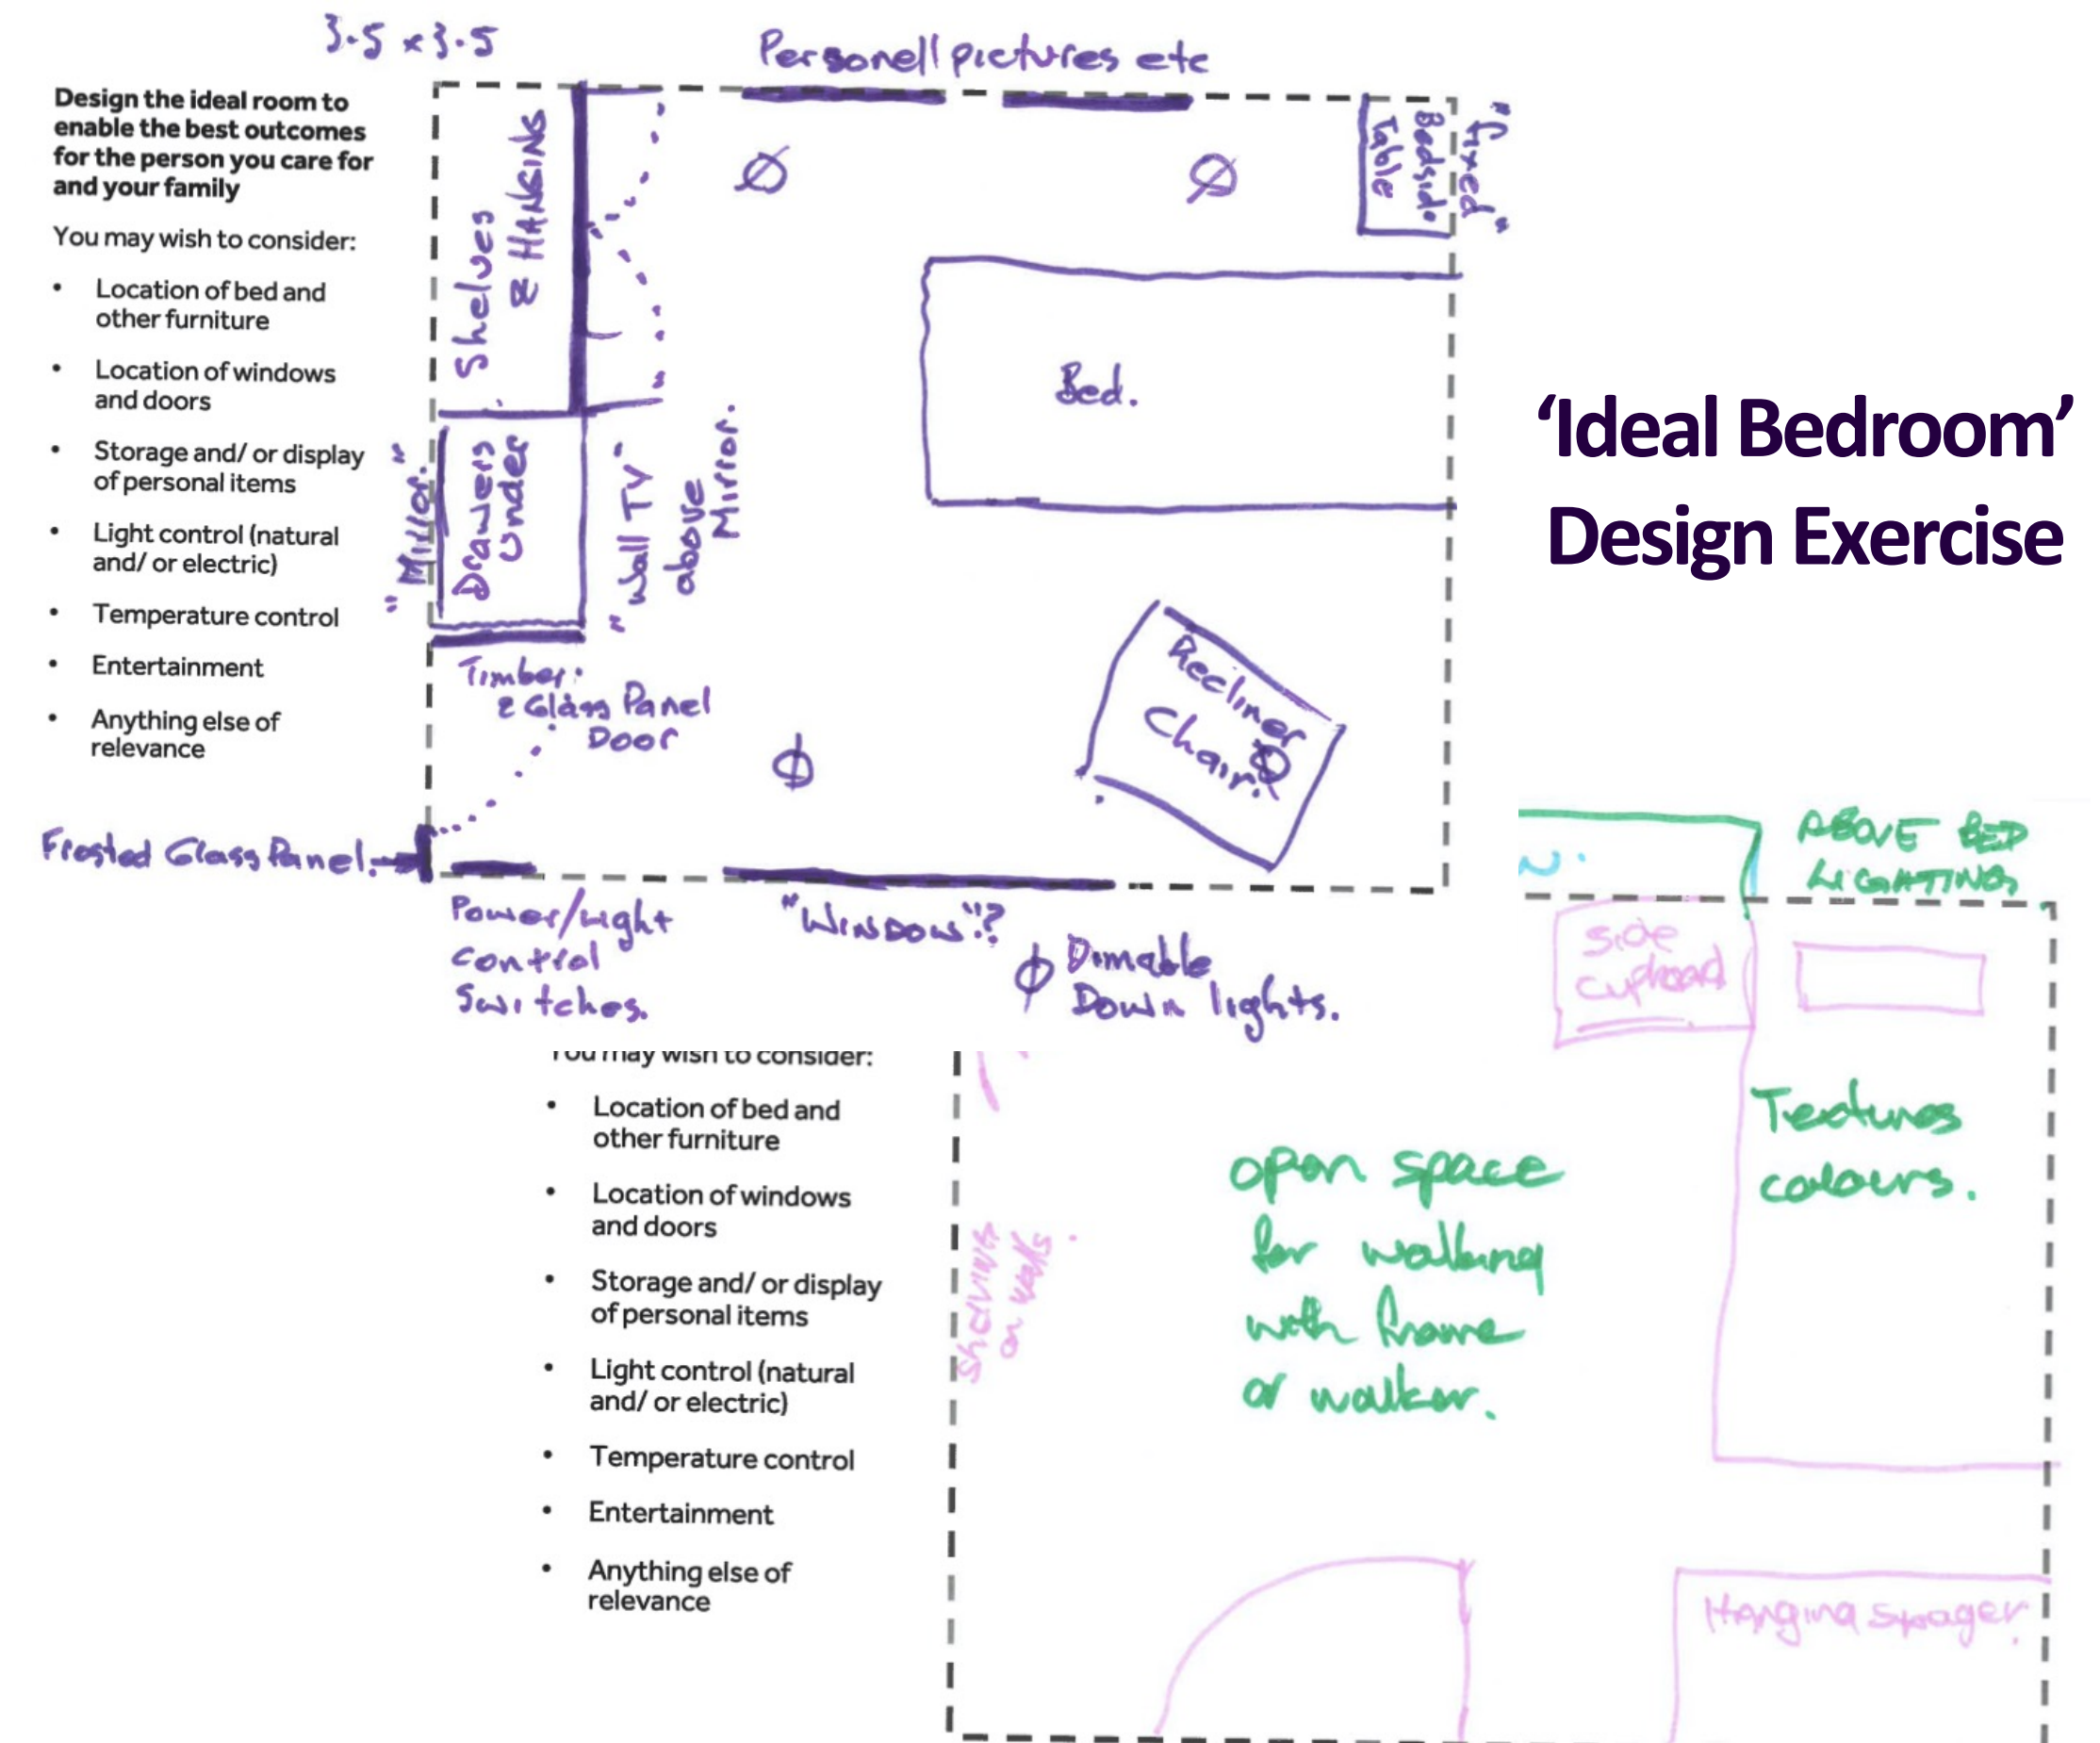 3.5 x 3.5
Personell pictures etc
Design the ideal room to
enable the best outcomes
for the person you care for
and your family
You may wish to consider:
• Location of bed and
other furniture
• Location of windows
and doors
• Storage and/ or display
of personal items
• Light control (natural
and/ or electric)
• Temperature control
• Entertainment
• Anything else of
relevance
Shelves
& HANGING
Bedside
Table
"fixed"
Bed.
"Mirror."
Drawers
Under
"Wall TV"
above
Mirror.
Timber
& Glass Panel
Door
Recliner
Chair.
Frosted Glass Panel.
Power/Light
Control
Switches.
"WINDOW"?
Dimable
Down lights.
'Ideal Bedroom'
Design Exercise
ABOVE BED
LIGHTING
side
cupboard
Textures
colours.
You may wish to consider:
• Location of bed and
other furniture
• Location of windows
and doors
• Storage and/ or display
of personal items
• Light control (natural
and/ or electric)
• Temperature control
• Entertainment
• Anything else of
relevance
shelving
on walls.
open space
for walking
with frame
or walker.
Hanging